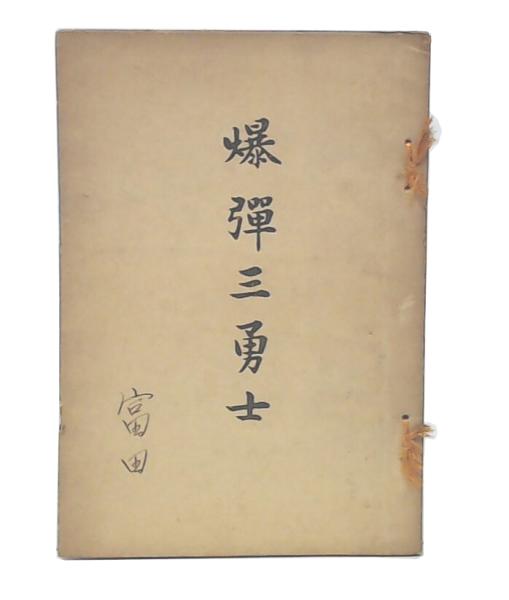 爆彈三勇士
富田